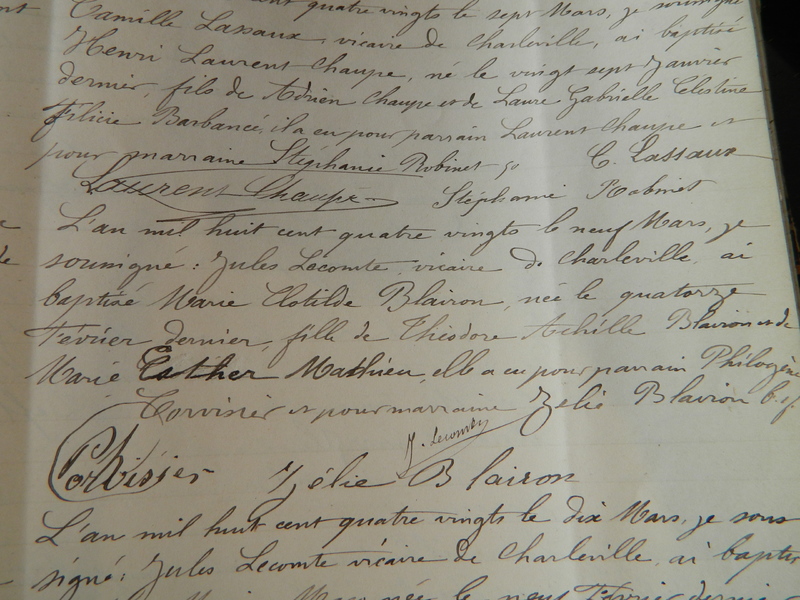 cent quatre vingts le sept Mars, je soussigné
Camille Lassaux, vicaire de Charleville, ai baptisé
Henri Laurent Chaupe, né le vingt sept Janvier
dernier, fils de Adrien Chaupe et de Laure Gabrielle Célestine
Félicie Barbancé, il a eu pour parrain Laurent Chaupe et
pour marraine Stéphanie Robinet C. Lassaux
Laurent Chaupe Stéphanie Robinet
L'an mil huit cent quatre vingts le neuf Mars, je
soussigné : Jules Lecomte, vicaire de Charleville, ai
baptisé Marie Clotilde Blairon, née le quatorze
Février dernier, fille de Théodore Achille Blairon et de
Marie Esther Mathieu, elle a eu pour parrain Philogène
Corvisier et pour marraine Zélie Blairon
J. Lecomte
Corvisier Zélie Blairon
L'an mil huit cent quatre vingts le dix Mars, je sous
signé : Jules Lecomte vicaire de Charleville, ai baptisé
née le neuf Février dernier